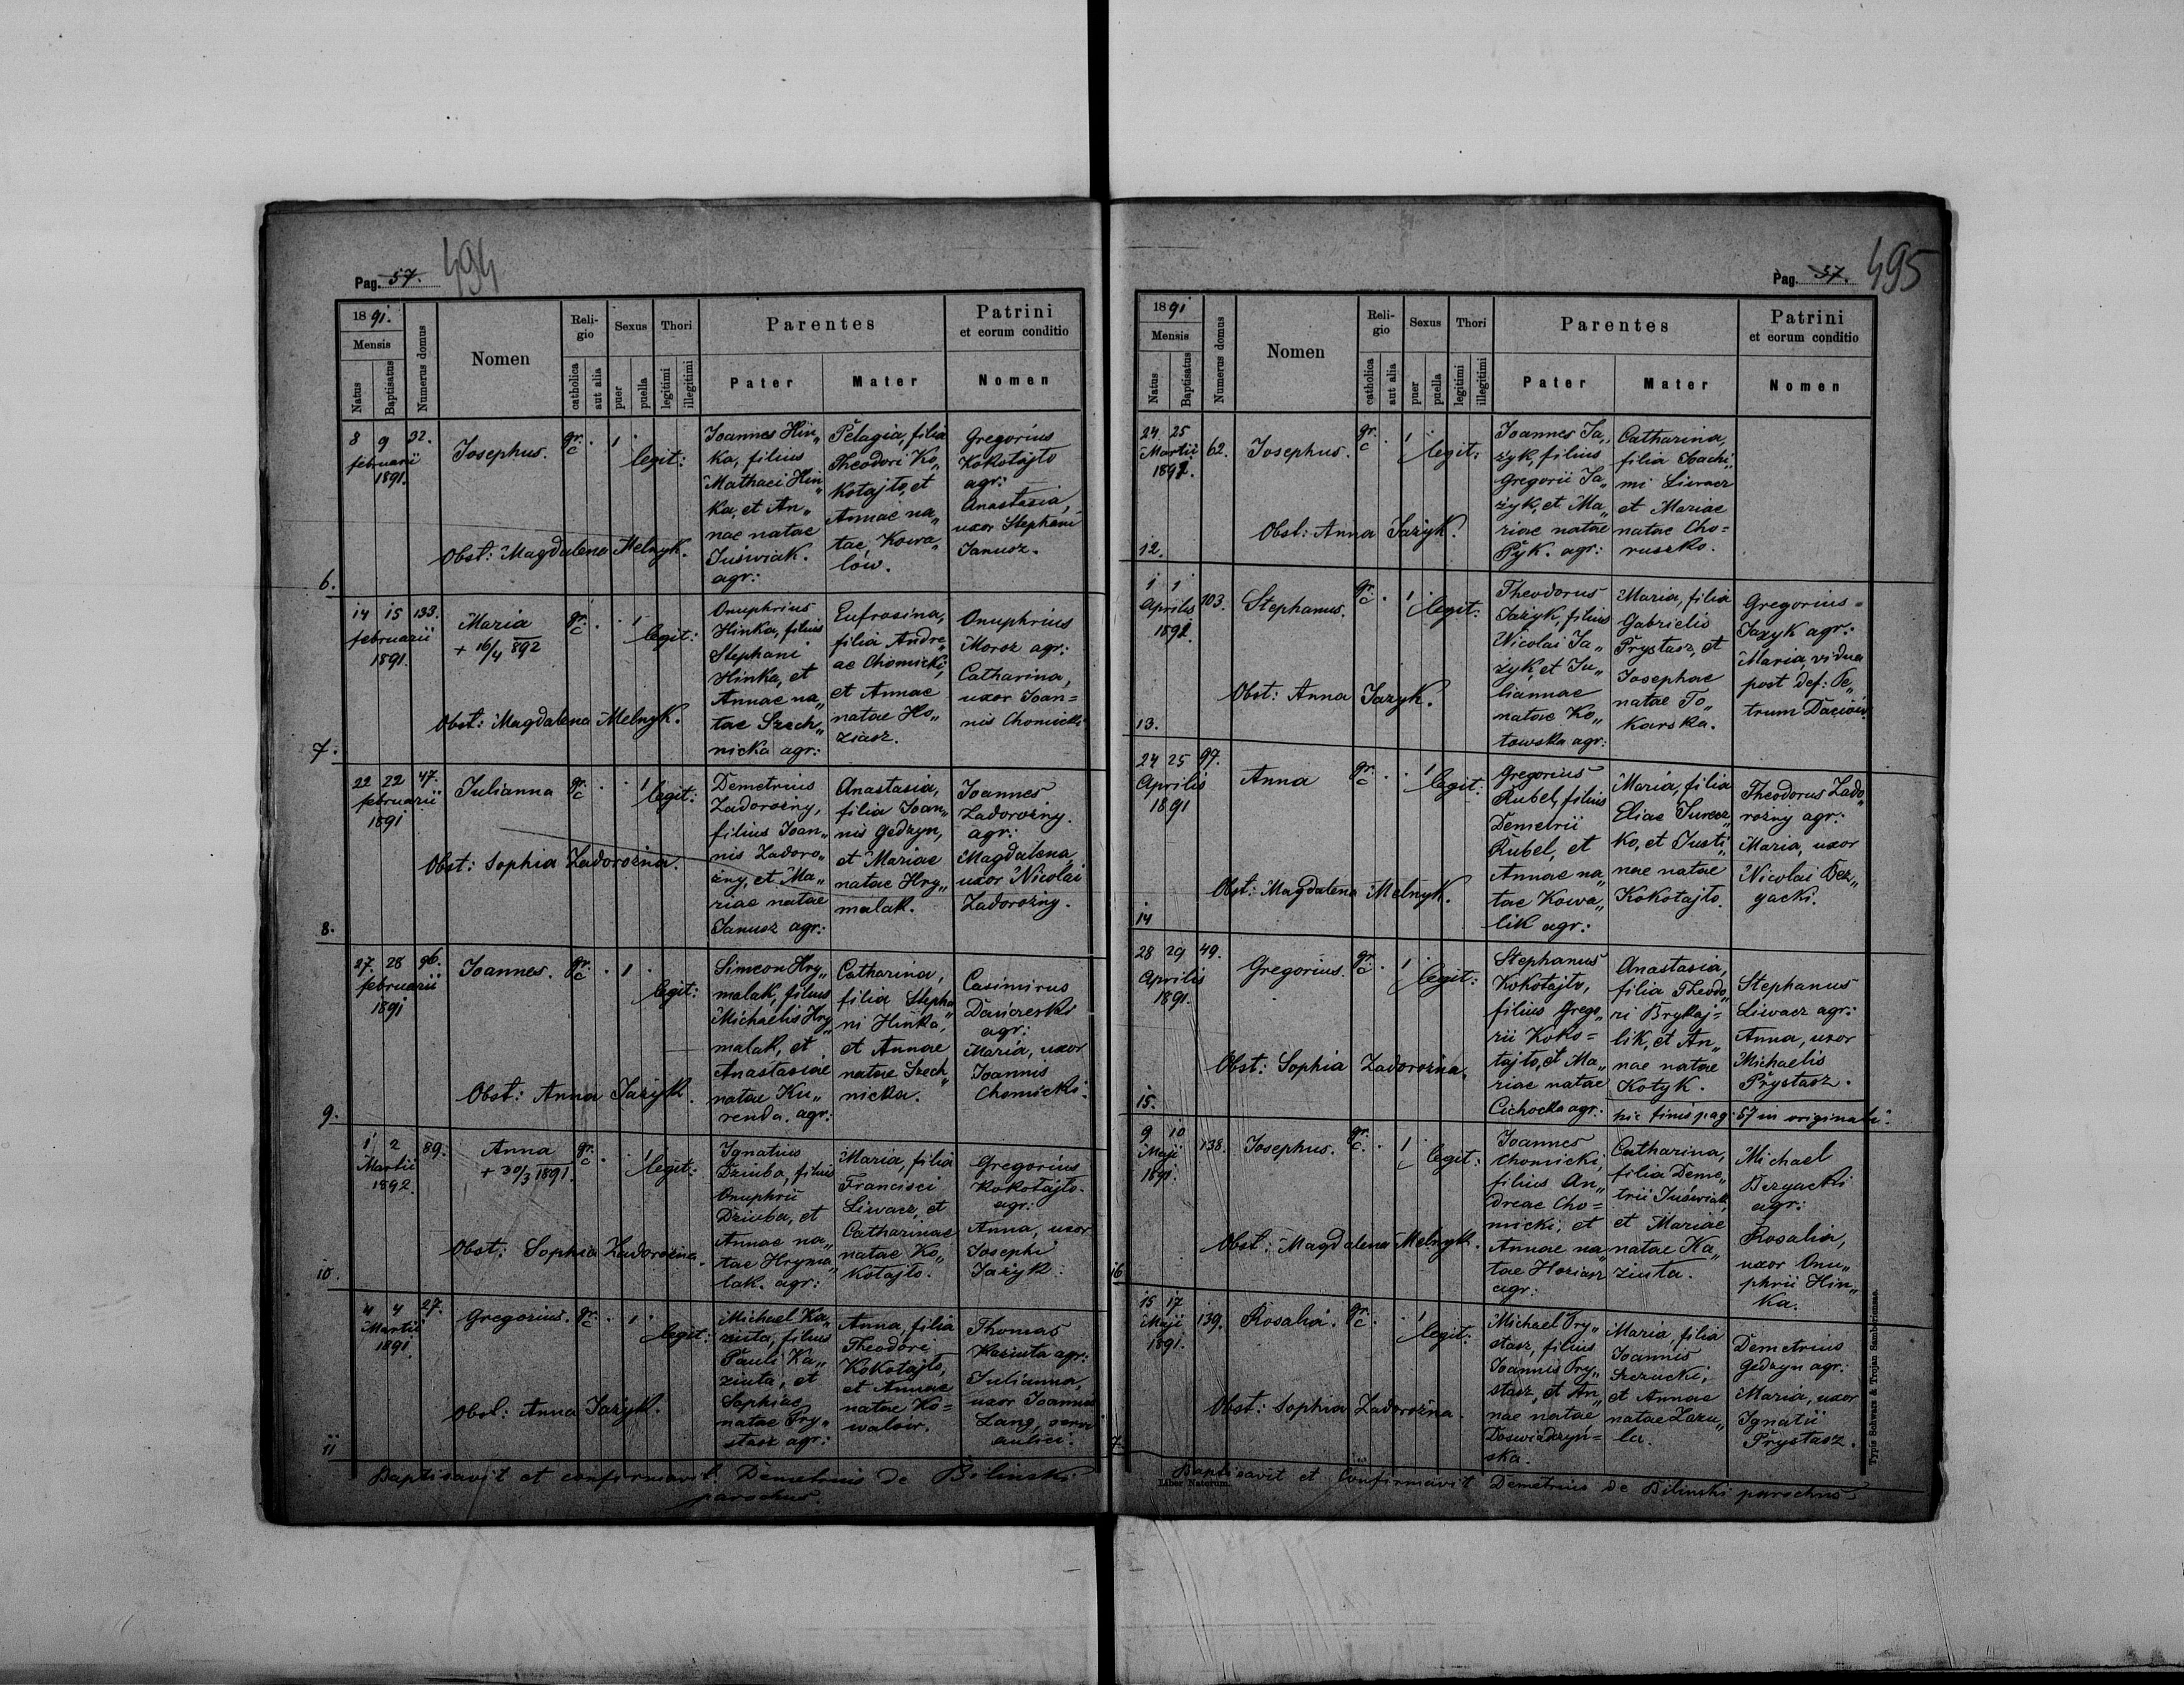 Pag. 57. 494
1891.
Mensis
Natus
Baptisatus
Numerus domus
Nomen
Reli-
gio
catholica
aut alia
Sexus
puer
puella
Thori
legitimi
illegitimi
Parentes
Pater
Mater
Patrini
et eorum conditio
Nomen
6.
8 9 32.
februarii
1891.
Josephus.
gr:
c
1
legit:
Obst: Magdalena Melnyk.
Joannes Hin„
ka, filius
Mathaei Hin„
ka, et An„
nae natae
Juświak.
agr:
Pelagia, filia
Theodori Ko„
kotajto, et
Annae na„
tae Kowa„
low.
Gregorius
Kokotajto
agr:
Anastasia,
uxor Stephani
Janusz.
7.
14 15 133.
februarii
1891.
Maria
+ 16/4 892
gr:
c
1
legit:
Obst: Magdalena Melnyk.
Onuphrius
Hinka, filius
Stephani
Hinka, et
Annae na„
tae Szech„
nicka agr:
Eufrosina,
filia Andre„
ae Chomicki,
et Annae
natae Ho„
ziasz.
Onuphrius
Moroz agr:
Catharina,
uxor Joan=
nis Chomicki
8.
22 22 47.
februarii
1891
Julianna
gr:
c
1
legit:
Obst: Sophia Zadorozna.
Demetrius
Zadorozny,
filius Joan„
nis Zadoro„
zny, et Ma„
riae natae
Janusz agr:
Anastasia,
filia Joan„
nis Gedzyn,
et Mariae
natae Hry„
malak.
Joannes
Zadorozny.
agr:
Magdalena,
uxor Nicolai
Zadorozny.
9.
27. 28 96.
februarii
1891
Joannes.
gr:
c
1
legit:
Obst: Anna Jazyk.
Simeon Hry„
malak, filius
Michaelis Hry„
malak, et
Anastasiae
natae Ku„
renda. agr:
Catharina,
filia Stepha„
ni Hinka,
et Annae
natae Szech„
nicka.
Casimirus
Dańczeski
agr:
Maria, uxor
Joannis
Chomicki.
10.
1 2 89.
Martii
1892.
Anna
+ 30/3 1891.
gr:
c
1
legit:
Obst: Sophia Zadorozna.
Ignatius
Dziuba, filius
Onuphrii
Dziuba, et
Annae na„
tae Hryma„
lak. agr:
Maria, filia
Francisci
Liwacz, et
Catharinae
natae Ko„
kotajto.
Gregorius
Kokotajto.
agr:
Anna, uxor
Josephi
Jazyk.
11
4 4 27.
Martii
1891.
Gregorius.
gr:
c
1
legit:
Obst: Anna Jazyk.
Michael Ka„
ziuta, filius
Pauli Ka„
ziuta, et
Sophiae
natae Pry„
stasz agr:
Anna, filia
Theodori
Kokotajto,
et Annae
natae Ko=
walow.
Thomas
Kaziuta agr:
Julianna,
uxor Joannis
Lang,
aulici.
Baptisavit et confirmavit. Demetrius de Bilinski
parochus.
Pag. 57. 495
1891
Mensis
Natus
Baptisatus
Numerus domus
Nomen
Reli-
gio
catholica
aut alia
Sexus
puer
puella
Thori
legitimi
illegitimi
Parentes
Pater
Mater
Patrini
et eorum conditio
Nomen
12.
24 25 62.
Martii
1891.
Josephus.
gr:
c
1
legit:
Obst: Anna Jazyk.
Joannes Ja„
zyk, filius
Gregorii Ja„
zyk, et Ma„
riae natae
Pyk. agr:
Catharina,
filia Joachi„
mi Liwacz
et Mariae
natae Cho=
ruszko.
13.
1 1 103.
Aprilis
1891.
Stephanus.
gr:
c
1
legit:
Obst: Anna Jazyk.
Theodorus
Jazyk, filius
Nicolai Ja„
zyk, et Ju„
liannae
natae Ko„
towska agr:
Maria, filia
Gabrielis
Prystasz, et
Josephae
natae To„
karska.
Gregorius
Jazyk agr:
Maria, vidua
post def: Pe„
trum Daciow.
14
24 25 97.
Aprilis
1891
Anna
gr:
c
1
legit:
Obst: Magdalena Melnyk.
Gregorius
Rubel, filius
Demetrii
Rubel, et
Annae na„
tae Kowa„
lik agr:
Maria, filia
Eliae Jurecz„
ko, et Justi„
nae natae
Kokotajto.
Theodorus Zado„
rozny agr:
Maria, uxor
Nicolai Bez„
yacki.
15.
28 29 49.
Aprilis
1891.
Gregorius.
gr:
c
1
legit:
Obst: Sophia Zadorozna.
Stephanus
Kokotajto,
filius Grego„
rii Koko=
tajto, et Ma„
riae natae
Cichocka agr:
Anastasia,
filia Theodo„
ri Brykaj=
lik, et An„
nae natae
Kotyk.
Stephanus
Liwacz agr:
Anna, uxor
Michaelis
Prystasz.
hic finis pag: 57 in originali.
16
9 10 138.
Maji
1891.
Josephus.
gr:
c.
1
legit:
Obst: Magdalena Melnyk.
Joannes
Chomicki,
filius An„
dreae Cho=
micki, et
Annae na„
tae Hoziasz
agr:
Catharina,
filia Deme„
trii Juświak,
et Mariae
natae Ka„
ziuta.
Michael
Bezyacki
agr:
Rosalia,
uxor Onu„
phrii Hin„
ka.
7.
15 17 139.
Maji
1891.
Rosalia.
gr:
c
1
legit:
Obst: Sophia Zadorozna.
Michael Pry„
stasz, filius
Joannis Pry„
stasz, et An„
nae natae
Doswiadczyń=
ska.
Maria, filia
Joannis
Szczucki,
et Annae
natae Zazu„
la.
Demetrius
Gedzyn agr:
Maria, uxor
Ignatii
Prystasz.
Baptisavit et Confirmavit Demetrius de Bilinski parochus
Liber Natorum.
Typis Schwarz & Trojan Samboriense.